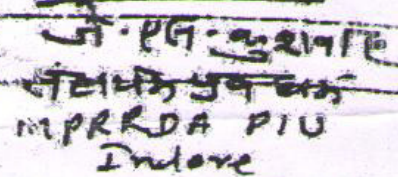 जे. एल. कुशवाह
सहायक प्रबंधक
MPRRDA PIU
Indore